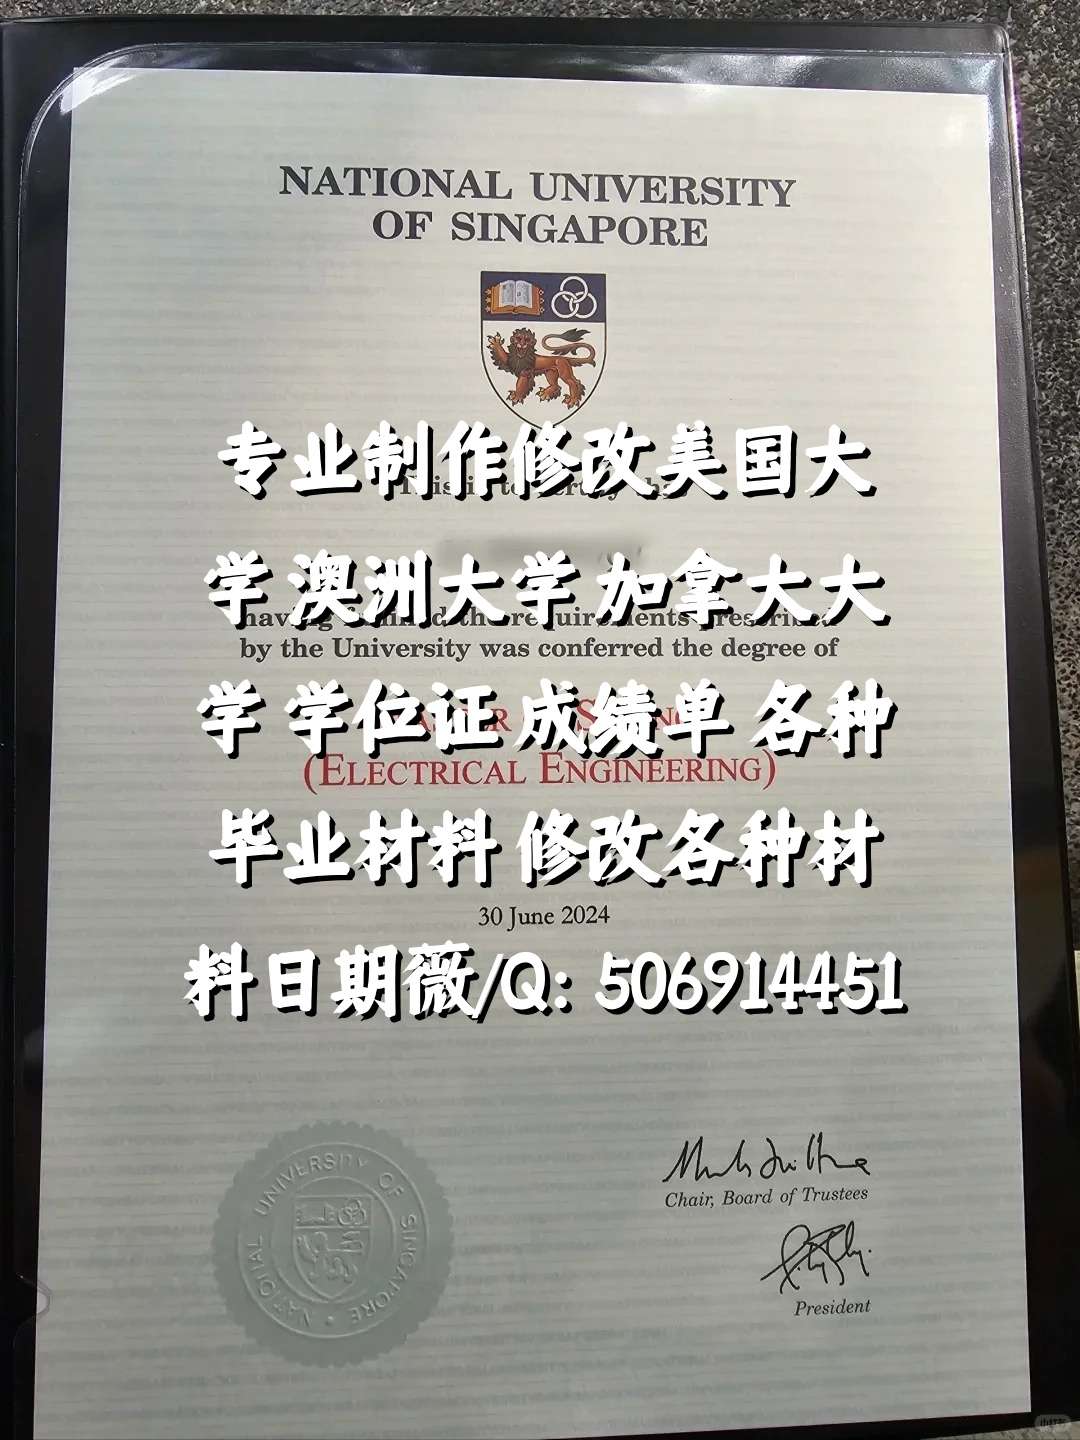 NATIONAL UNIVERSITY
OF SINGAPORE
专业制作修改美国大
This is to certify that
学 澳洲大学 加拿大大
having fulfilled the requirements prescribed
by the University was conferred the degree of
学 学位证 成绩单 各种
MASTER OF SCIENCE
(ELECTRICAL ENGINEERING)
毕业材料 修改各种材
30 June 2024
料日期薇/Q: 506914451
NATIONAL UNIVERSITY OF SINGAPORE
Chair, Board of Trustees
President